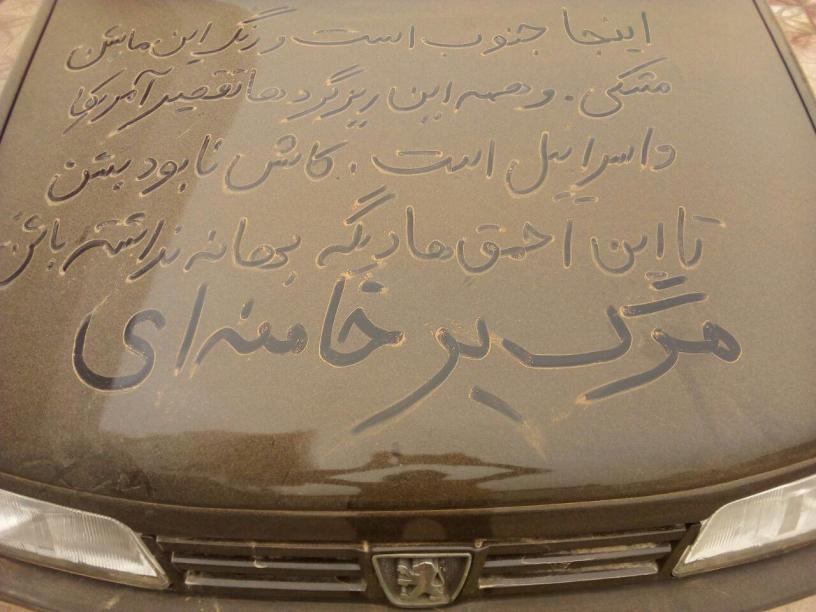 اینجا جنوب است و رنگ این ماشن
مشکی . و همه این ریزگردها تقصیر آمریکا
و اسراییل است . کاش نابود بشن
تا این احمق ها دیگه بهانه نداشته باشن
مرگ بر خامنه ای